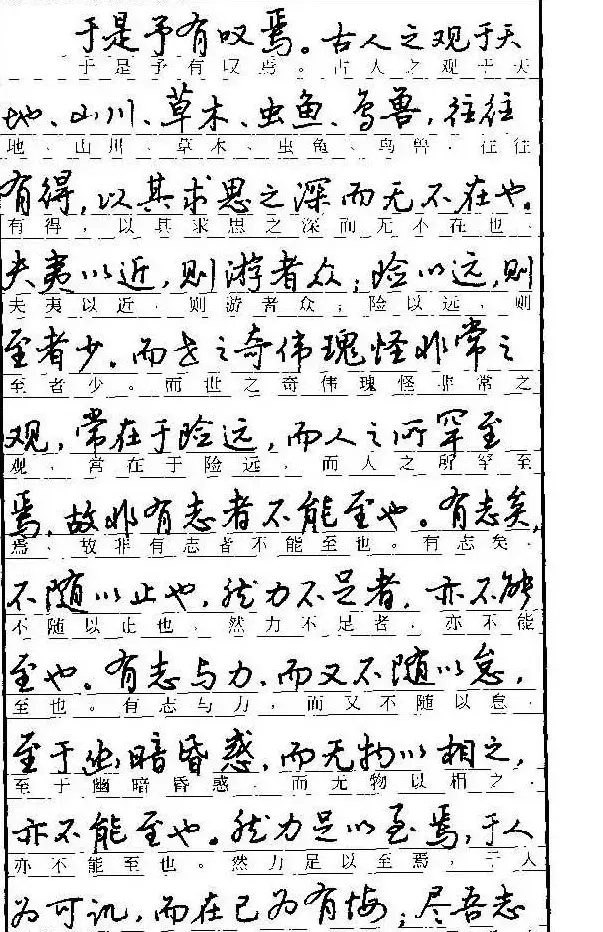 于是予有叹焉。古人之观于天
于是予有叹焉。古人之观于天
地、山川、草木、虫鱼、鸟兽,往往
地、山川、草木、虫鱼、鸟兽,往往
有得,以其求思之深而无不在也。
有得,以其求思之深而无不在也。
夫夷以近,则游者众;险以远,则
夫夷以近,则游者众;险以远,则
至者少。而世之奇伟瑰怪非常之
至者少。而世之奇伟瑰怪非常之
观,常在于险远,而人之所罕至
观,常在于险远,而人之所罕至
焉,故非有志者不能至也。有志矣,
焉,故非有志者不能至也。有志矣,
不随以止也,然力不足者,亦不能
不随以止也,然力不足者,亦不能
至也。有志与力,而又不随以怠,
至也。有志与力,而又不随以怠,
至于幽暗昏惑,而无物以相之,
至于幽暗昏惑,而无物以相之,
亦不能至也。然力足以至焉,于人
亦不能至也。然力足以至焉,于人
为可讥,而在己为有悔;尽吾志